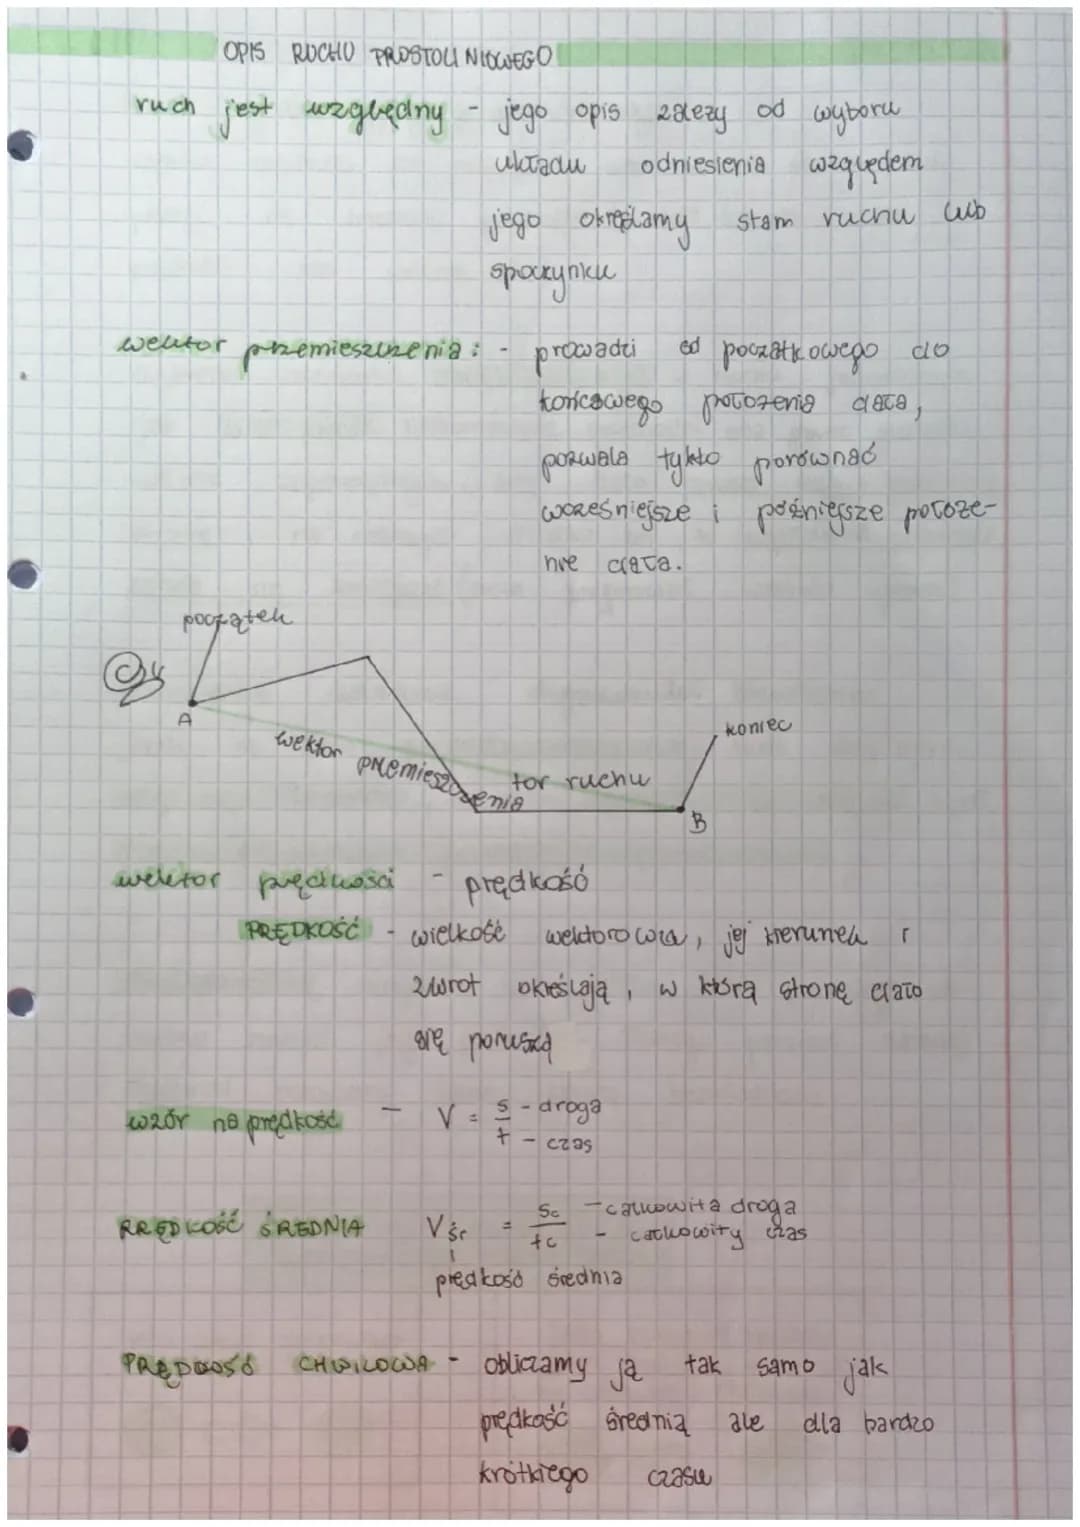 OPIS RUCHU PROSTOLINIOWEGO
ruch jest względny - jego opis zależy od wyboru
układu odniesienia względem
jego określamy stan ruchu lub
spoczynku
wektor przemieszczenia: - prowadzi od początkowego do
końcowego położenia ciała,
pozwala tylko porównać
wcześniejsze i późniejsze położe-
nie ciała.
początek
A
wektor przemieszczenia
tor ruchu
koniec
B
wektor prędkości - prędkość
PRĘDKOŚĆ - wielkość wektorowa, jej kierunek i
zwrot określają, w którą stronę ciało
się porusza
wzór na prędkość - V = s/t - droga
- czas
PRĘDKOŚĆ ŚREDNIA Vśr = sc/tc - całkowita droga
- całkowity czas
prędkość średnia
PRĘDKOŚĆ CHWILOWA - obliczamy ją tak samo jak
prędkość średnią ale dla bardzo
krótkiego czasu